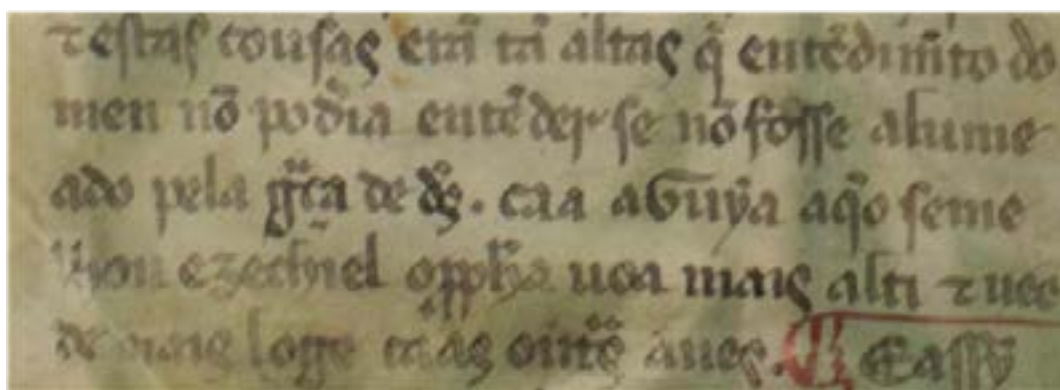 ⁊ estas cousas erã tã altas q̃ entẽdimẽto do
men nõ podia entẽder se nõ fosse alume
ado pela gr̃ça de ds̃. caa aguya aq̃o seme
lhou ezechiel opph̃a uoa mais alti ⁊ uee
de mais loge caas outs̃ aues. ¶ E assy